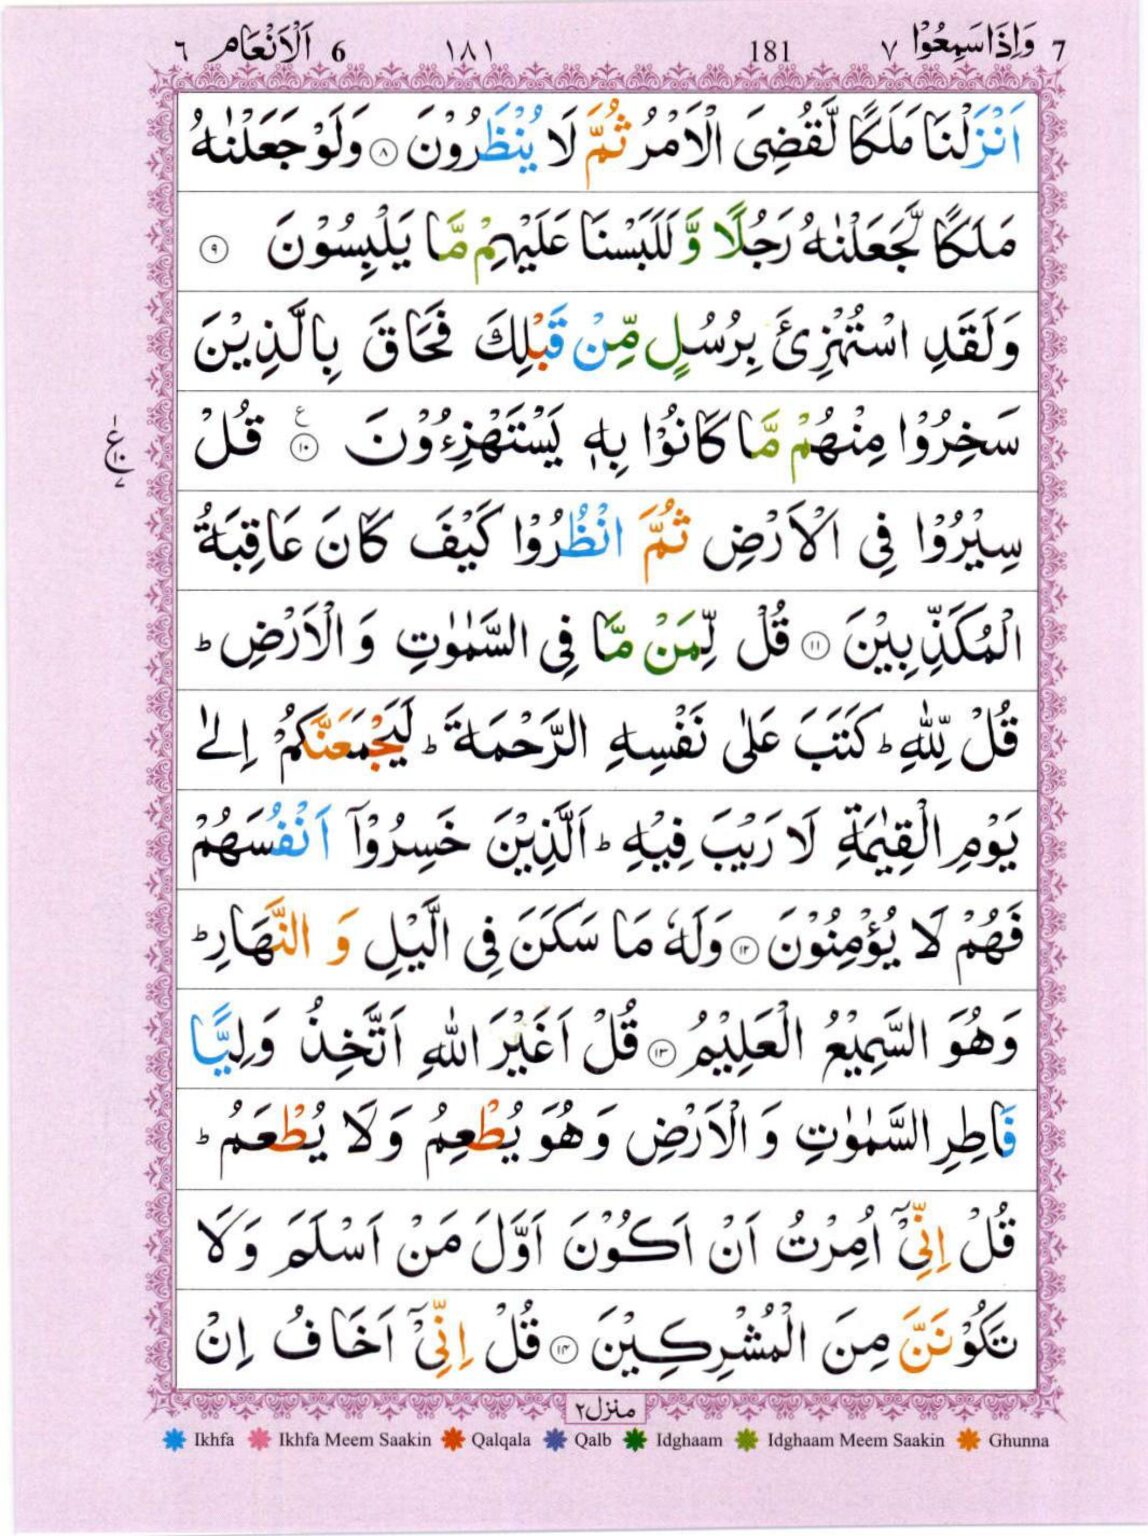 ٦ اَلْاَنْعَام 6 ١٨١ 181 ٧ وَاِذَا سَمِعُوْا 7
اَنْزَلْنَا مَلَكًا لَّقُضِىَ الْاَمْرُ ثُمَّ لَا يُنْظَرُوْنَ ۝٨ وَلَوْ جَعَلْنٰهُ
مَلَكًا لَّجَعَلْنٰهُ رَجُلًا وَّ لَلَبَسْنَا عَلَيْهِمْ مَّا يَلْبِسُوْنَ ۝٩
وَلَقَدِ اسْتُهْزِئَ بِرُسُلٍ مِّنْ قَبْلِكَ فَحَاقَ بِالَّذِيْنَ
سَخِرُوْا مِنْهُمْ مَّا كَانُوْا بِهٖ يَسْتَهْزِءُوْنَ ۝١٠ ع قُلْ
ع ١ ١٠ ٧
سِيْرُوْا فِى الْاَرْضِ ثُمَّ انْظُرُوْا كَيْفَ كَانَ عَاقِبَةُ
الْمُكَذِّبِيْنَ ۝١١ قُلْ لِّمَنْ مَّا فِى السَّمٰوٰتِ وَ الْاَرْضِ ؕ
قُلْ لِّلّٰهِ ؕ كَتَبَ عَلٰى نَفْسِهِ الرَّحْمَةَ ؕ لَيَجْمَعَنَّكُمْ اِلٰى
يَوْمِ الْقِيٰمَةِ لَا رَيْبَ فِيْهِ ؕ اَلَّذِيْنَ خَسِرُوْۤا اَنْفُسَهُمْ
فَهُمْ لَا يُؤْمِنُوْنَ ۝١٢ وَلَهٗ مَا سَكَنَ فِى الَّيْلِ وَ النَّهَارِ ؕ
وَهُوَ السَّمِيْعُ الْعَلِيْمُ ۝١٣ قُلْ اَغَيْرَ اللّٰهِ اَتَّخِذُ وَلِيًّا
فَاطِرِ السَّمٰوٰتِ وَ الْاَرْضِ وَهُوَ يُطْعِمُ وَلَا يُطْعَمُ ؕ
قُلْ اِنِّىْۤ اُمِرْتُ اَنْ اَكُوْنَ اَوَّلَ مَنْ اَسْلَمَ وَلَا
تَكُوْنَنَّ مِنَ الْمُشْرِكِيْنَ ۝١٤ قُلْ اِنِّىْۤ اَخَافُ اِنْ
منزل ٢
Ikhfa Ikhfa Meem Saakin Qalqala Qalb Idghaam Idghaam Meem Saakin Ghunna